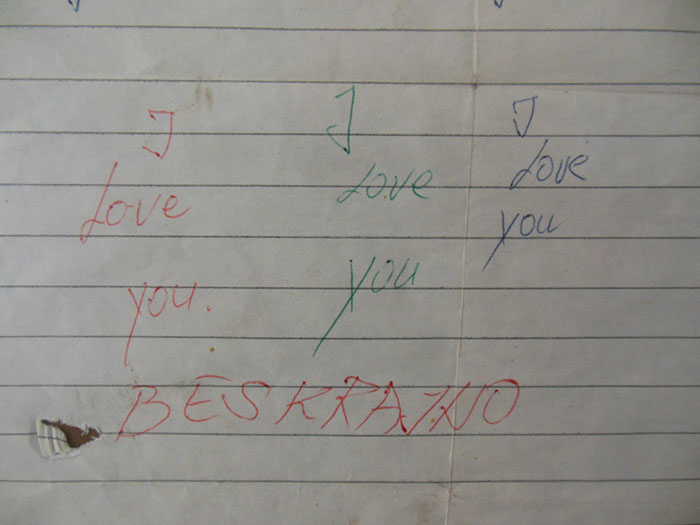 I
Love
you.
I
Love
you
I
Love
you
BESKRAJNO